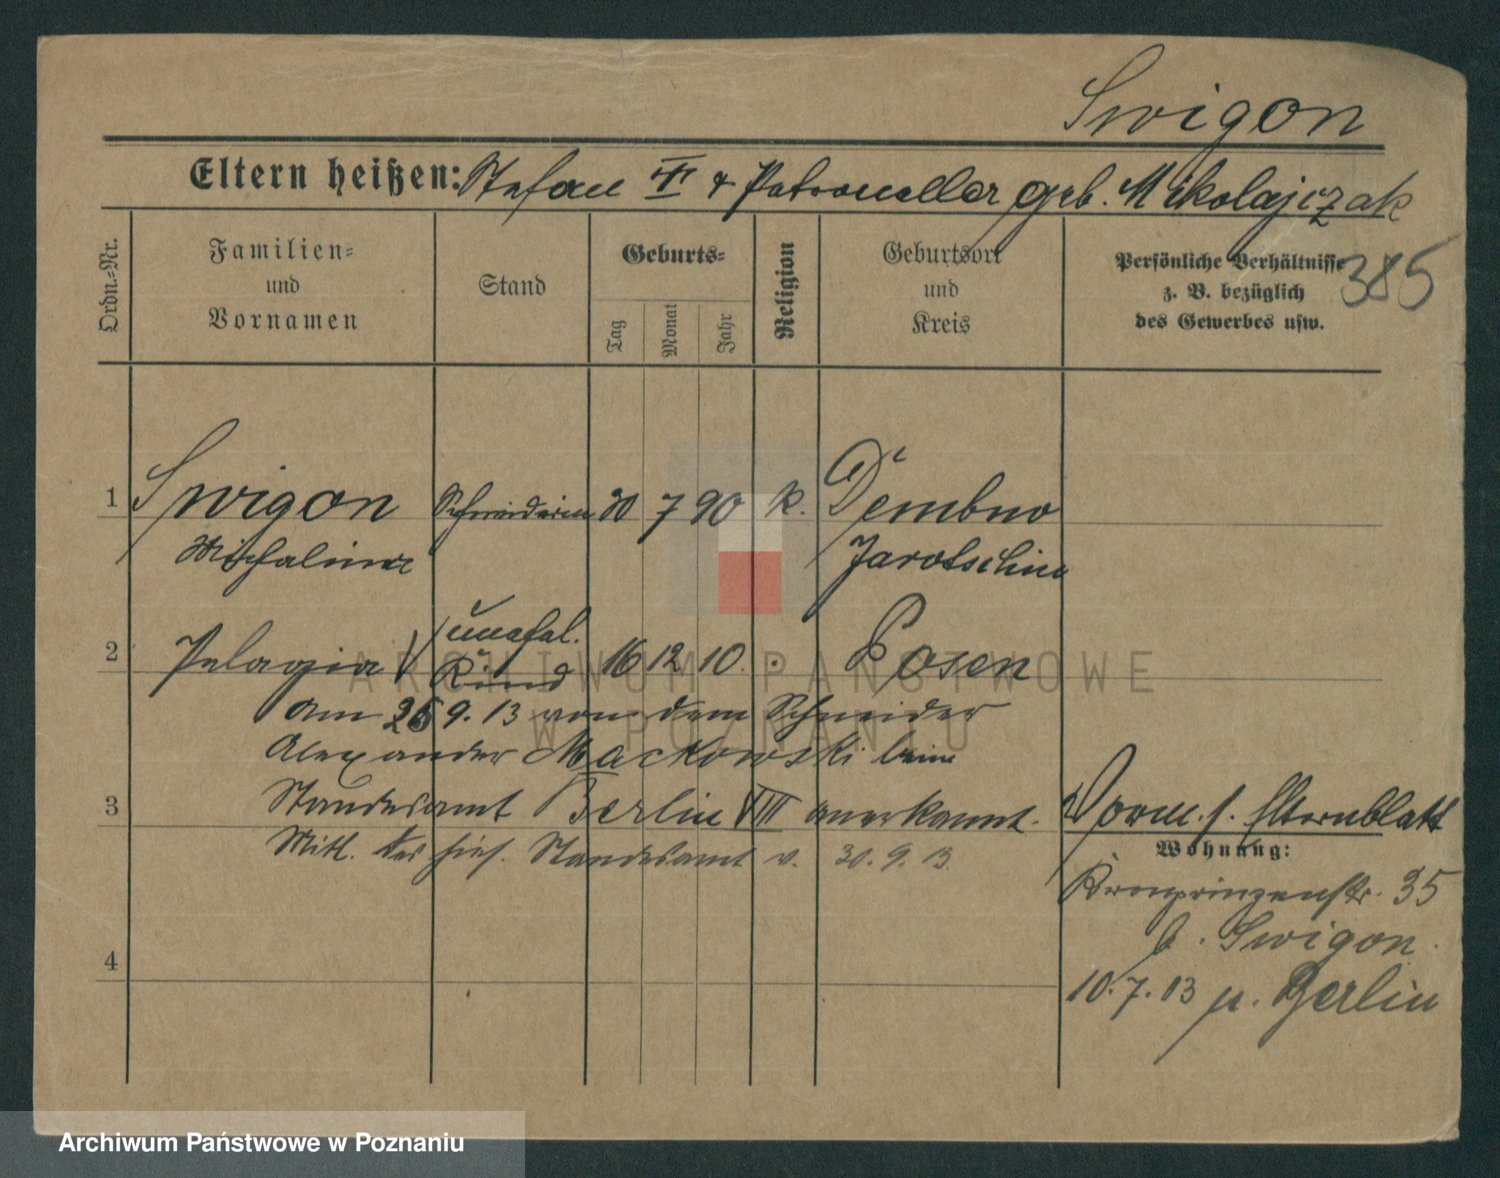 Swigon
Eltern heißen: Stefan III & Petronella geb. Mikolajczak
385
Ordn.=Nr.
Familien=
und
Vornamen
Stand
Geburts=
Tag
Monat
Jahr
Religion
Geburtsort
und
Kreis
Persönliche Verhältnisse
z. B. bezüglich
des Gewerbes usw.
1 Swigon Schneiderin 30 7 90 k. Dembno
Michalina Jarotschin
unehel.
2 Pelagia Kind 16 12 10 Posen
ARCHIWUM PAŃSTWOWE
W POZNANIU
am 26 9. 13 von dem Schneider
Alexander Mackowski beim
3 Standesamt Berlin VIII anerkannt.
Mitt. des hies. Standesamt v. 30. 9. 13.
Vorm. s. Elternblatt
Wohnung:
Kronprinzenstr. 35
b. Swigon.
4
10. 7. 13 n. Berlin
Archiwum Państwowe w Poznaniu